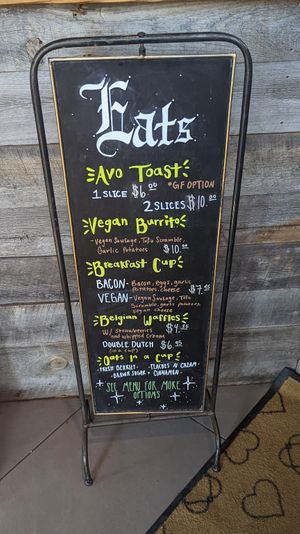 Eats
Avo Toast
1 SLICE $6.00 *GF OPTION
2 SLICES $10.00
Vegan Burrito
- Vegan Sausage, Tofu Scramble,
Garlic Potatoes $10.00
Breakfast Cup
BACON - Bacon, eggs, garlic
potatoes, cheese $7.95
VEGAN - Vegan Sausage, Tofu
Scramble, garlic potatoes,
vegan cheese
Belgian Waffles
W/ Strawberries $4.25
and whipped cream
DOUBLE DUTCH $6.95
(in a cup)
Oats in a Cup
- FRESH BERRIES - PEACHES N CREAM
- BROWN SUGAR + CINNAMON
SEE MENU FOR MORE
OPTIONS